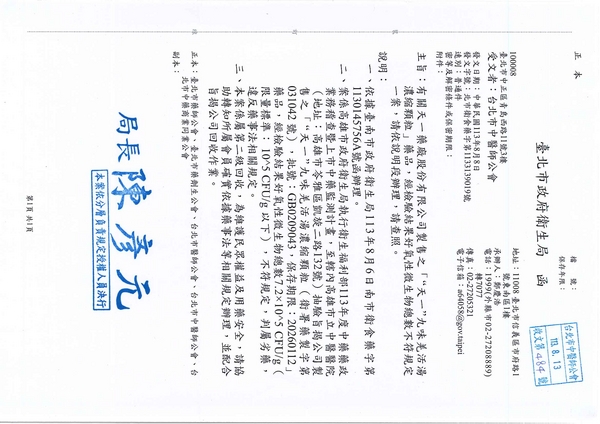 正 本
檔 號：
保存年限：
臺北市政府衛生局 函
地址：11008 臺北市信義區市府路1
號東南區1樓
承辦人：鄭慶浩
電話：1999(外縣市02-27208889)
轉7077
傳真：02-27205321
電子信箱：a64058@gov.taipei
台北市中醫師公會
113.8.13
收文第484號
100008
臺北市中正區青島西路11號3樓
受文者：台北市中醫師公會
發文日期：中華民國113年8月8日
發文字號：北市衛食藥字第1131139019號
速別：普通件
密等及解密條件或保密期限：
附件：
主旨：有關天一藥廠股份有限公司製售之「“天一”九味羌活湯
濃縮顆粒」藥品，經檢驗結果好氧性微生物總數不符規定
一案，請依說明段辦理，請查照。
說明：
一、依據臺南市政府衛生局113年8月6日南市衛食藥字第
1130145756A號函辦理。
二、案係高雄市政府衛生局執行衛生福利部113年度中藥藥政
業務稽查暨上市中藥監測計畫，至轄內高雄市立中醫醫院
（地址：高雄市苓雅區凱旋二路132號）抽驗旨揭公司製
售之「“天一”九味羌活湯濃縮顆粒（衛署藥製字第
031042 號），批號：GB0209043，保存期限：20260112」
藥品，經檢驗結果好氧性微生物總數7.2×10^5 CFU/g（
限量標準：10^5 CFU/g 以下），不符規定，判屬劣藥，
違反藥事法相關規定。
三、本案係屬第二級回收，為維護民眾權益及用藥安全，請協
助轉知所屬會員確實依據藥事法等相關規定辦理，並配合
旨揭公司回收作業。
正本：臺北市藥師公會、臺北市藥劑生公會、台北市中醫師公會、台
北市中藥商業同業公會
副本：
局長 陳彥元
本案依分層負責規定授權人員決行
第1頁 共1頁